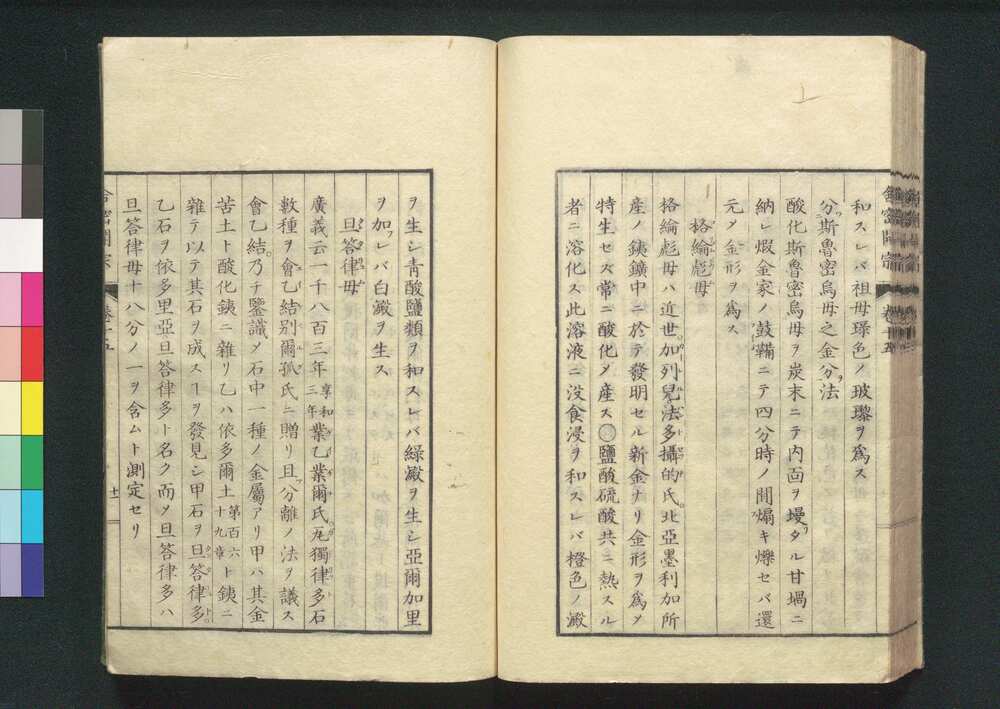 和スレバ祖母璌色ノ玻瓈ヲ爲ス
分斯魯密烏母之金分法
酸化斯魯密烏母ヲ炭末ニテ内面ヲ墁タル甘堝ニ
納レ煆金家ノ鼓鞴ニテ四分時ノ間煽キ爍セバ還
元ノ金形ヲ爲ス
格綸彪母
格綸彪母ハ近世加列兒法多攝的氏北亞墨利加所
産ノ銕鑛中ニ於テ發明セル新金ナリ金形ヲ爲メ
特生セズ常ニ酸化メ産ス鹽酸硫酸共ニ熱スル
者ニ溶化ス此溶液ニ没食浸ヲ和スレバ橙色ノ澱
舎密開宗 卷十五
ヲ生シ青酸鹽類ヲ和スレバ綠澱ヲ生シ亞爾加里
ヲ加フレバ白澱ヲ生ス
旦答律母
廣義云一千八百三年享和三年業乙業爾氏瓦獨律多石
數種ヲ會乙結別爾孤氏ニ贈リ且分離ノ法ヲ議ス
會乙結乃チ鑒識メ石中一種ノ金屬アリ甲ハ其金
苦土ト酸化銕ニ雜リ乙ハ依多爾土第百六十九章ト銕ニ
雜テ以テ其石ヲ成スヿヲ發見シ甲石ヲ旦答律多
乙石ヲ依多里亞旦答律多ト名ク而メ旦答律多ハ
旦答律母十八分ノ一ヲ含ムト測定セリ
舎密開宗 卷十五 十二